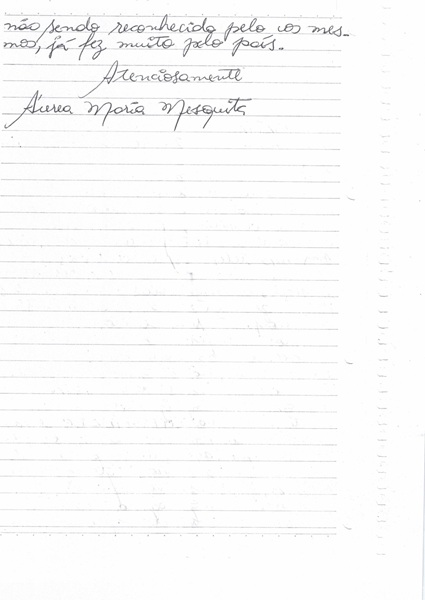 não sendo reconhecido pelo os mes-
mos, já fez muito pelo país.
Atenciosamente
Áurea Maria Mesquita